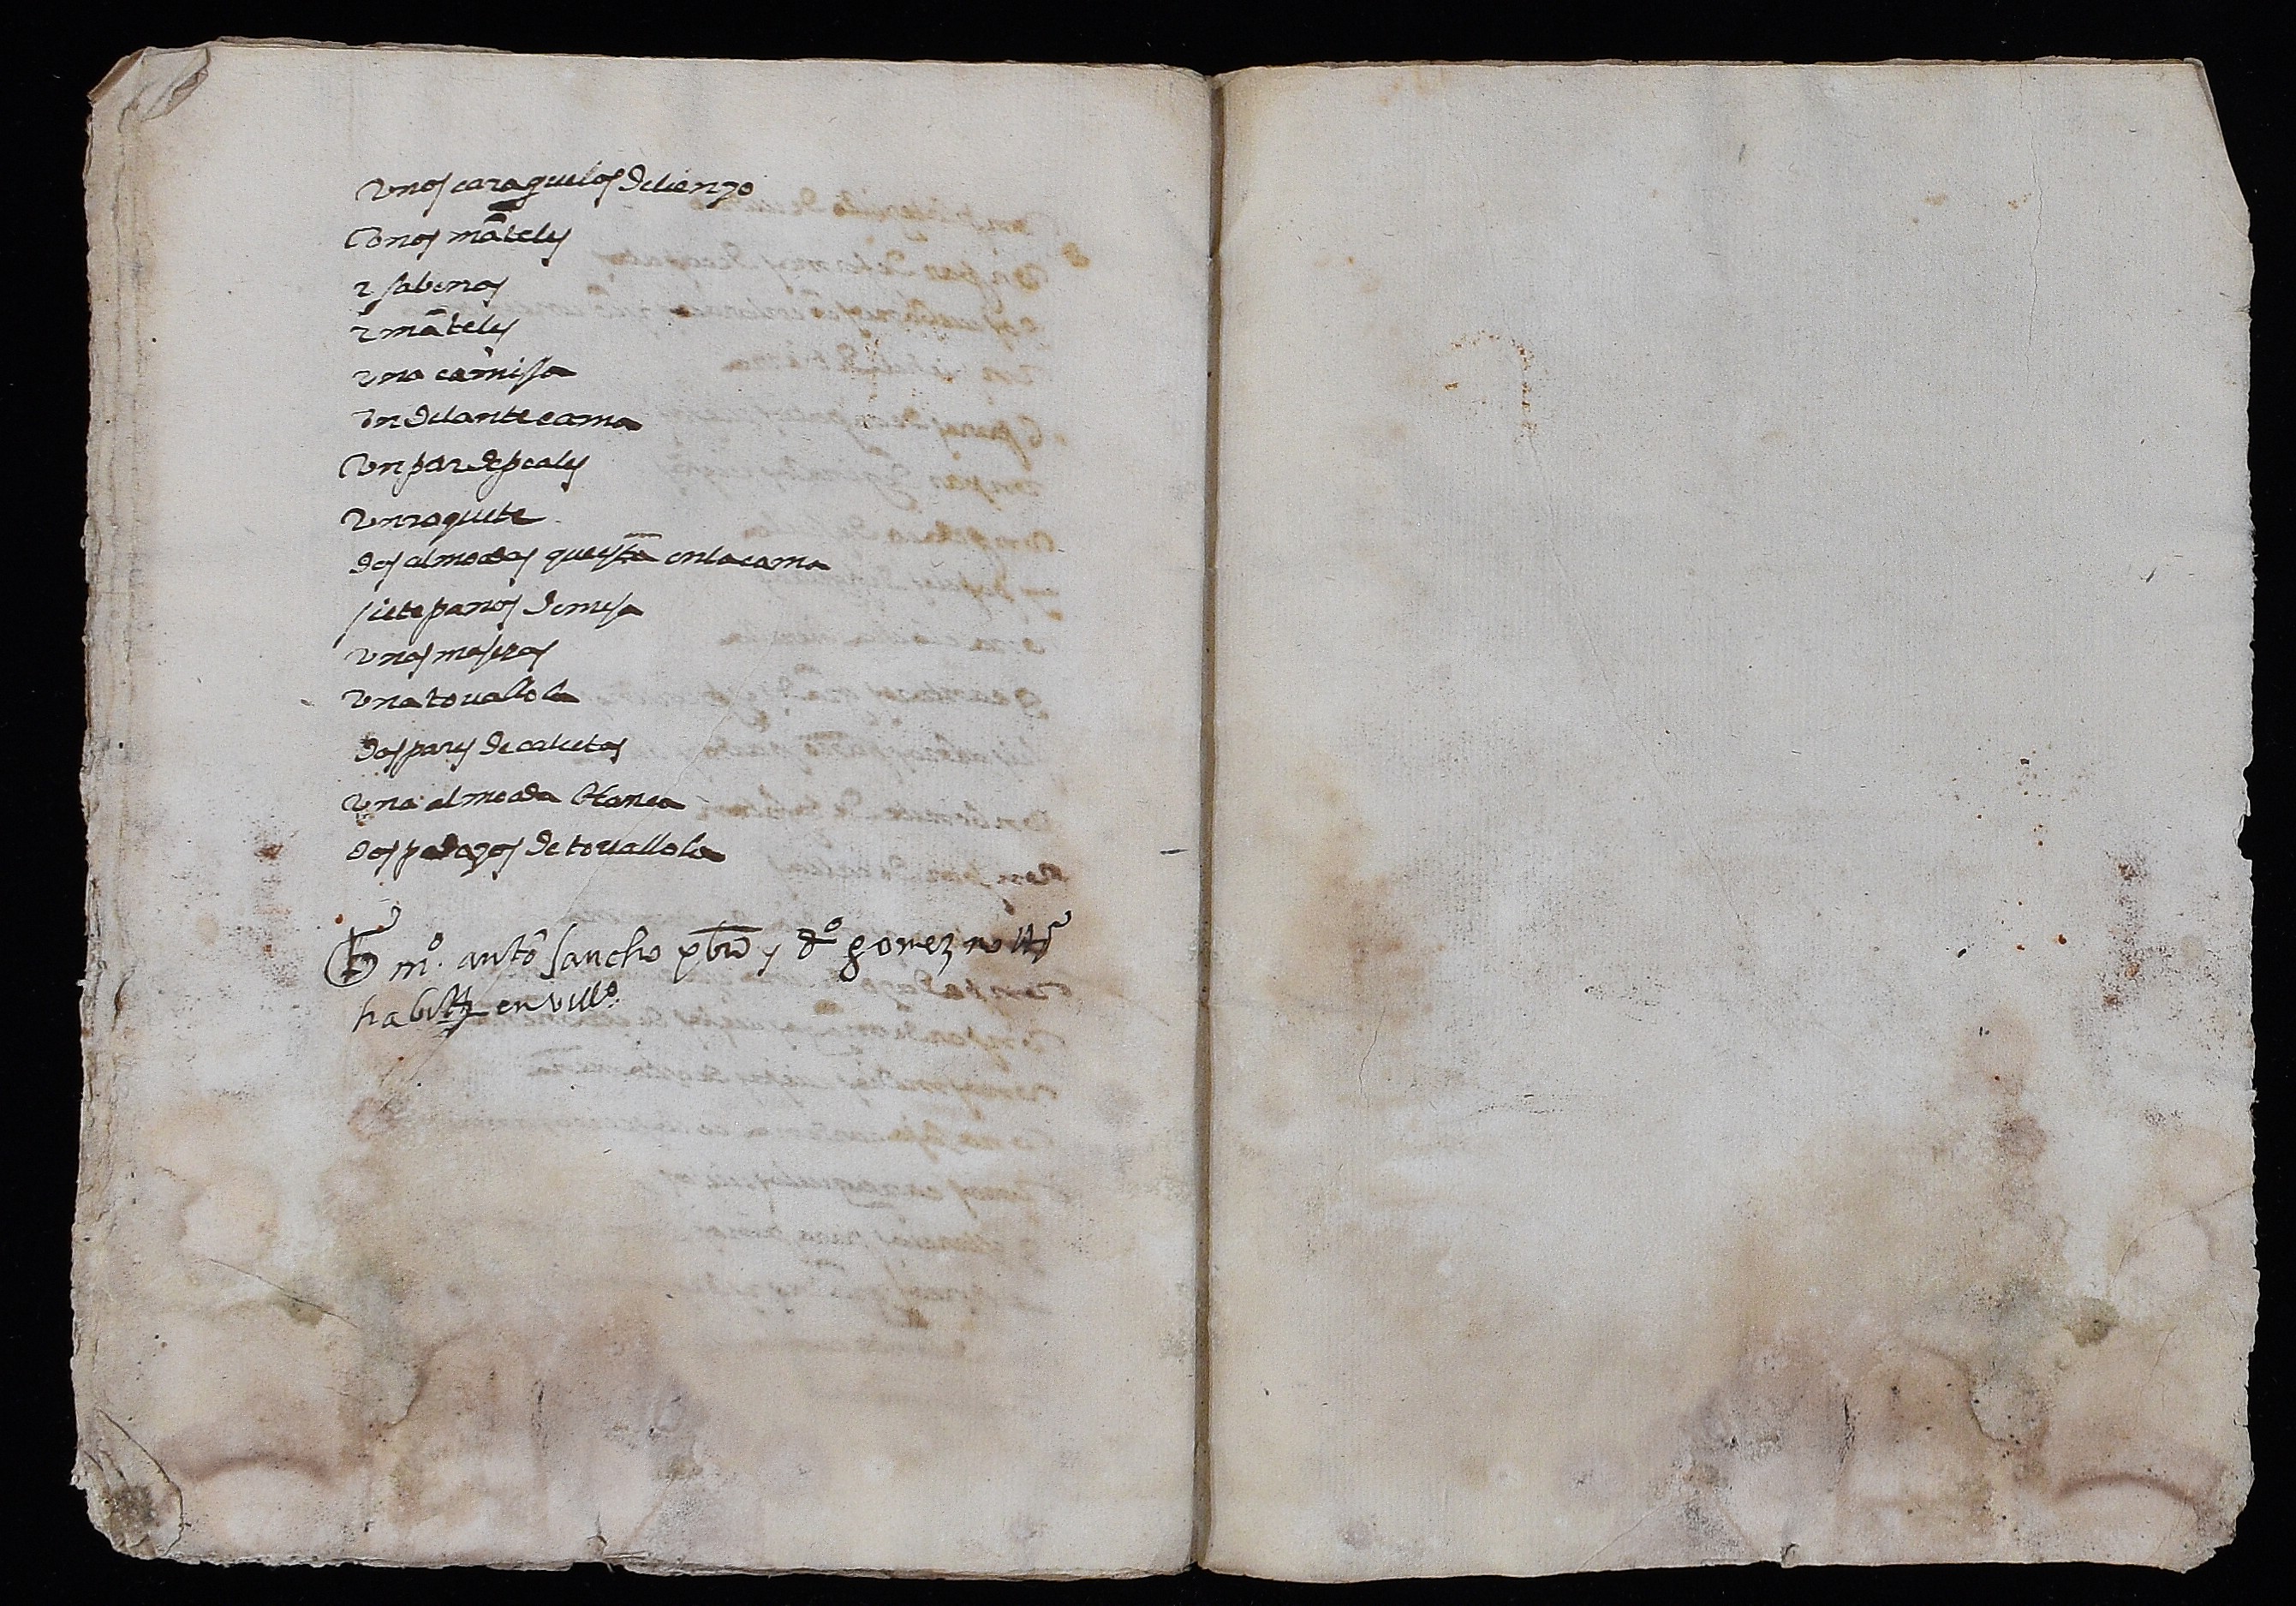 Unos caraguelos de lienzo
Unos mãteles
2 sabenas
2 mãteles
una camissa
un delantecama
Un par de peales
Un roquete
dos almoadas que estã en la cama
siete panos de mesa
unas
una tovallola
dos pares de calcetas
una almoada blanca
dos pedazos de tovallola
mº. antº sancho pbrō y dº gomez nottº
habitt en villº